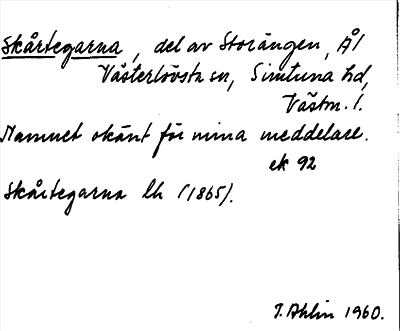 Skårtegarna, del av Storängen, Ål
Västerlövsta sn, Simtuna hd,
Västm. l.
Namnet okänt för mina meddelare.
ek 92
Skårtegarna lh (1865).
I. Ahlin 1960.